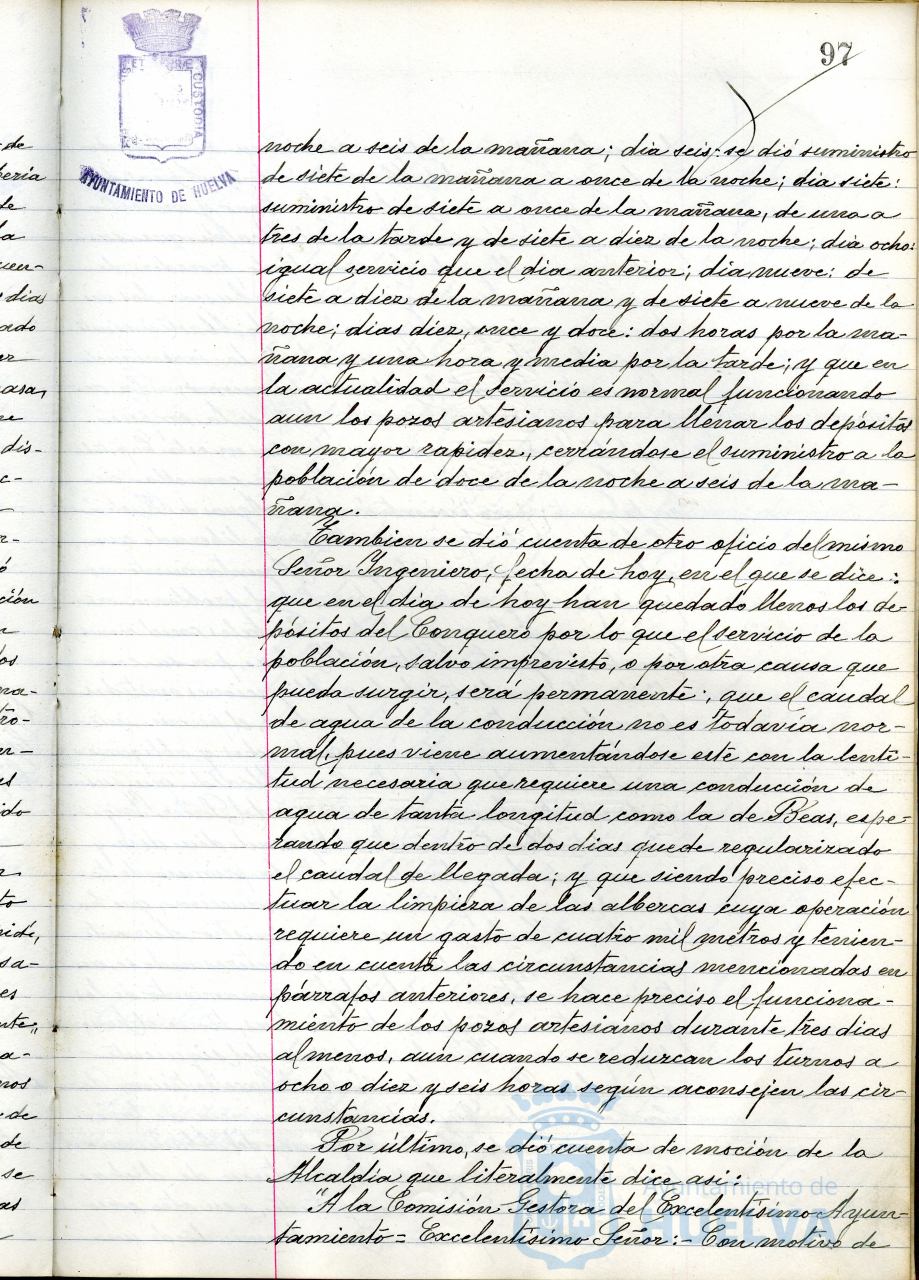 97
AYUNTAMIENTO DE HUELVA
CUSTODIA
noche a seis de la mañana; dia seis: se dió suministro
de siete de la mañana a once de la noche; dia siete:
suministro de siete a once de la mañana, de una a
tres de la tarde y de siete a diez de la noche; dia ocho:
igual servicio que el dia anterior; dia nueve: de
siete a diez de la mañana y de siete a nueve de la
noche; dias diez, once y doce: dos horas por la ma-
ñana y una hora y media por la tarde; y que en
la actualidad el servicio es normal funcionando
aun los pozos artesianos para llenar los depósitos
con mayor rapidez, cerrándose el suministro a la
población de doce de la noche a seis de la ma-
ñana.
Tambien se dió cuenta de otro oficio del mismo
Señor Ingeniero, fecha de hoy, en el que se dice:
que en el dia de hoy han quedado llenos los de-
pósitos del Conquero por lo que el servicio de la
población, salvo imprevisto, o por otra causa que
pueda surgir, será permanente; que el caudal
de agua de la conducción no es todavía nor-
mal, pues viene aumentándose este con la lenti-
tud necesaria que requiere una conducción de
agua de tanta longitud como la de Beas, espe-
rando que dentro de dos dias quede regularizado
el caudal de llegada; y que siendo preciso efec-
tuar la limpieza de las albercas cuya operación
requiere un gasto de cuatro mil metros y tenien-
do en cuenta las circunstancias mencionadas en
párrafos anteriores, se hace preciso el funciona-
miento de los pozos artesianos durante tres dias
al menos, aun cuando se reduzcan los turnos a
ocho o diez y seis horas según aconsejen las cir-
cunstancias.
Por último, se dió cuenta de moción de la
Alcaldía que literalmente dice asi:
"A la Comisión Gestora del Excelentísimo Ayun-
tamiento = Excelentísimo Señor: - Con motivo de
Ayuntamiento de
HUELVA